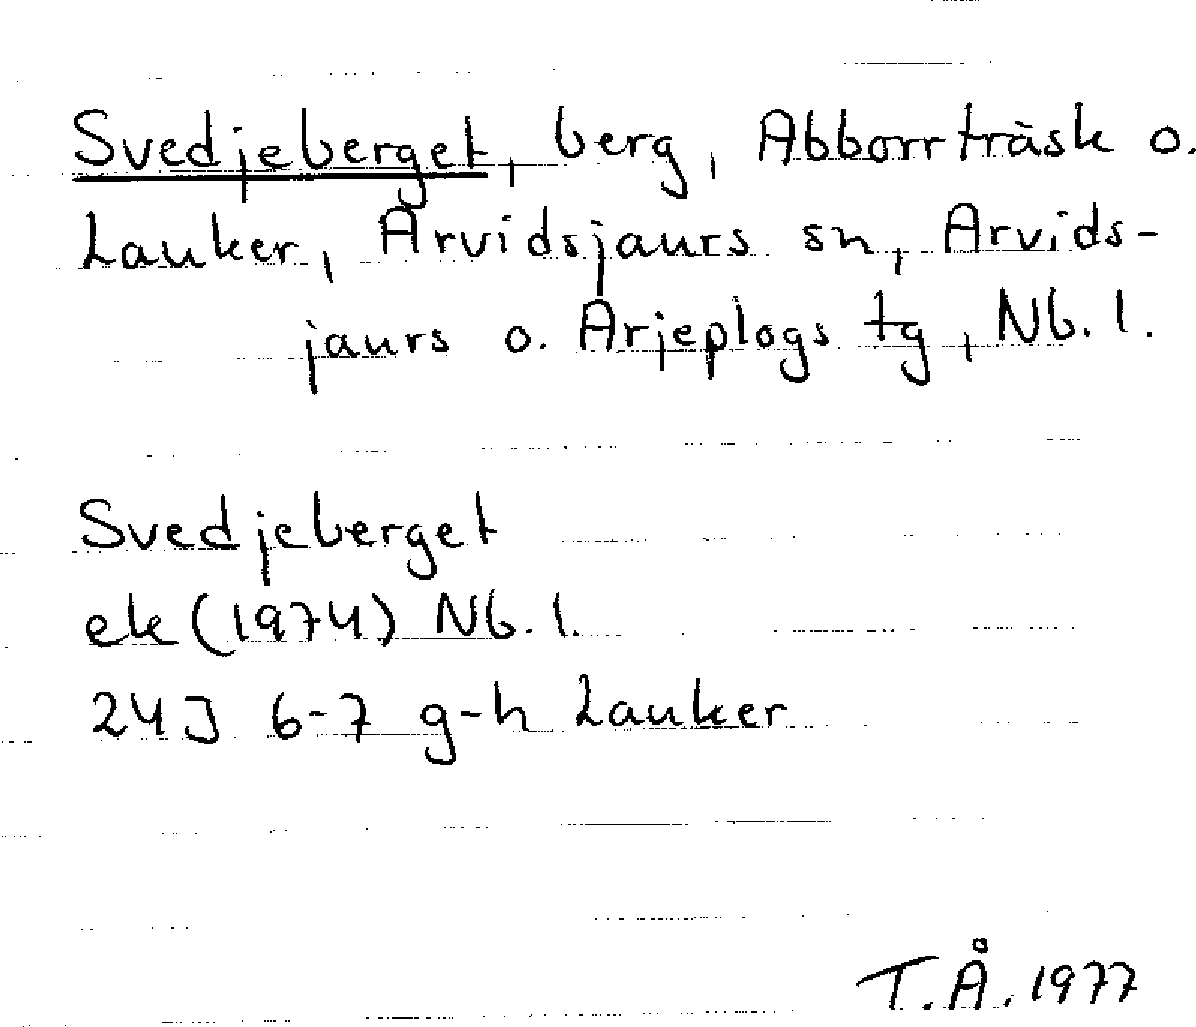 Svedjeberget, berg, Abborrträsk o.
Lauker, Arvidsjaurs sn, Arvids-
jaurs o. Arjeplogs tg, Nb. l.
Svedjeberget
ek (1974) Nb. l.
24J 6-7 g-h Lauker
T.Å. 1977